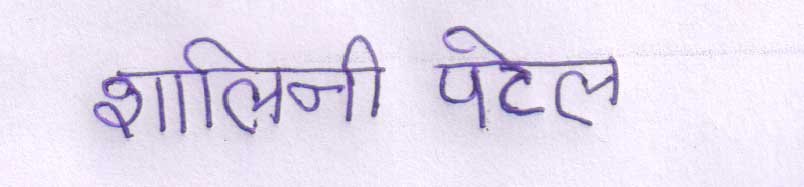 शालिनी पटेल